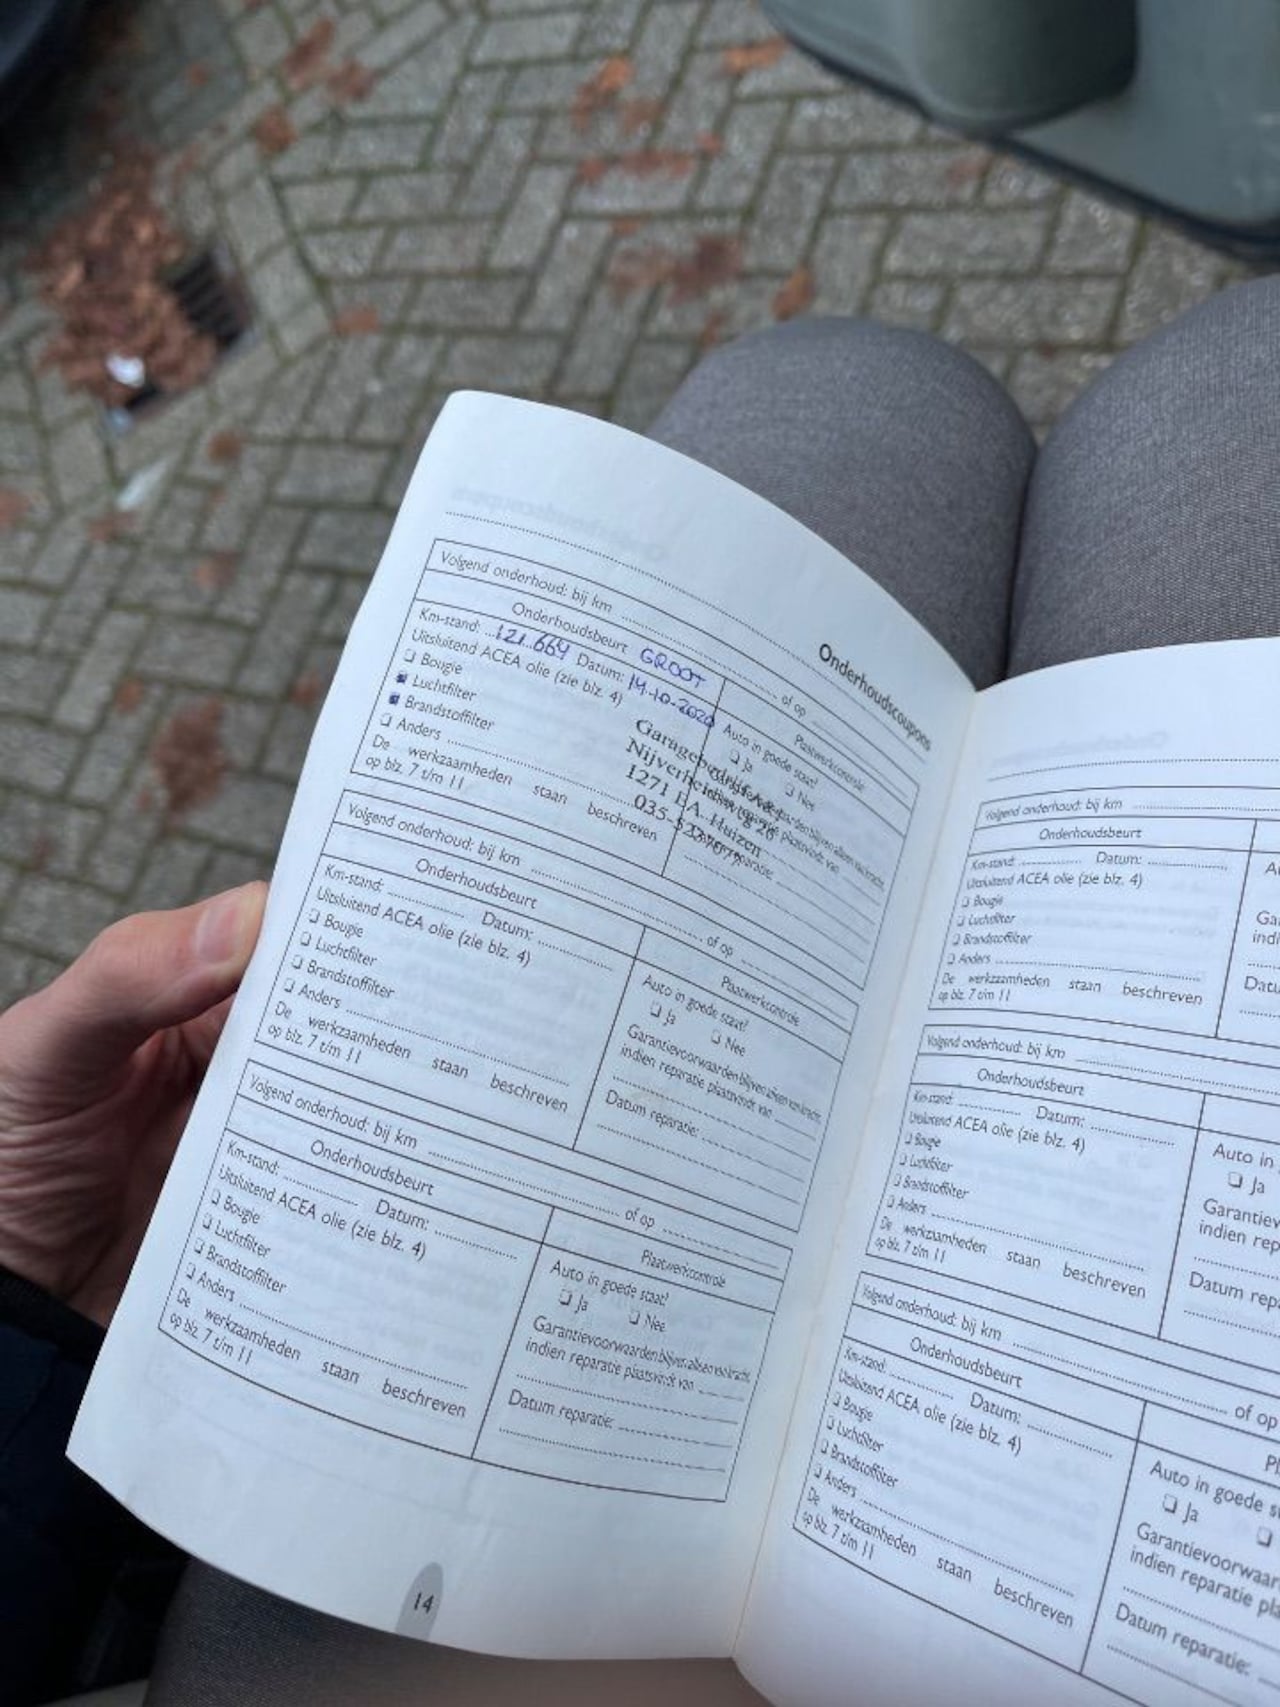 Onderhoudscoupons
Volgend onderhoud: bij km of op
Onderhoudsbeurt GROOT
Plaatwerkcontrole
Km-stand: 121.664 Datum: 14-10-2020
Uitsluitend ACEA olie (zie blz. 4)
Bougie
Luchtfilter
Brandstoffilter
Anders
De werkzaamheden staan beschreven
op blz. 7 t/m 11
Auto in goede staat?
Ja Nee
Garagebedrijf
Nijverheidsweg 26
1271 EA Huizen
035-5237677
Volgend onderhoud: bij km of op
Onderhoudsbeurt
Plaatwerkcontrole
Km-stand: Datum:
Uitsluitend ACEA olie (zie blz. 4)
Bougie
Luchtfilter
Brandstoffilter
Anders
De werkzaamheden staan beschreven
op blz. 7 t/m 11
Auto in goede staat?
Ja Nee
Garantievoorwaarden blijven alleen van kracht,
indien reparatie plaatsvindt van
Datum reparatie:
Volgend onderhoud: bij km of op
Onderhoudsbeurt
Plaatwerkcontrole
Km-stand: Datum:
Uitsluitend ACEA olie (zie blz. 4)
Bougie
Luchtfilter
Brandstoffilter
Anders
De werkzaamheden staan beschreven
op blz. 7 t/m 11
Auto in goede staat?
Ja Nee
Garantievoorwaarden blijven alleen van kracht,
indien reparatie plaatsvindt van
Datum reparatie:
14
Volgend onderhoud: bij km
Onderhoudsbeurt
Km-stand: Datum:
Uitsluitend ACEA olie (zie blz. 4)
Bougie
Luchtfilter
Brandstoffilter
Anders
De werkzaamheden staan beschreven
op blz. 7 t/m 11
Volgend onderhoud: bij km
Onderhoudsbeurt
Km-stand: Datum:
Uitsluitend ACEA olie (zie blz. 4)
Bougie
Luchtfilter
Brandstoffilter
Anders
De werkzaamheden staan beschreven
op blz. 7 t/m 11
Auto in
Ja
Garantiev
indien rep
Datum rep
Volgend onderhoud: bij km of op
Onderhoudsbeurt
Km-stand: Datum:
Uitsluitend ACEA olie (zie blz. 4)
Bougie
Luchtfilter
Brandstoffilter
Anders
De werkzaamheden staan beschreven
op blz. 7 t/m 11
Auto in goede s
Ja
Garantievoorwaar
indien reparatie pla
Datum reparatie: